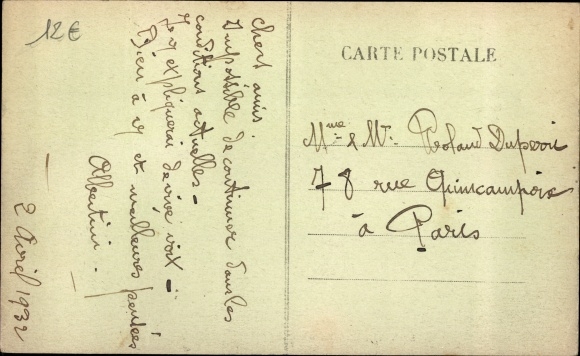 12€
Chers amis.
Impossible de continuer dans les
conditions actuelles -
Je vs expliquerai de vive voix -
Bien à vs et meilleures pensées
Albertini.
2 Avril 1932
CARTE POSTALE
Mme & Mr. Roland
78 rue Quincampoix
à Paris